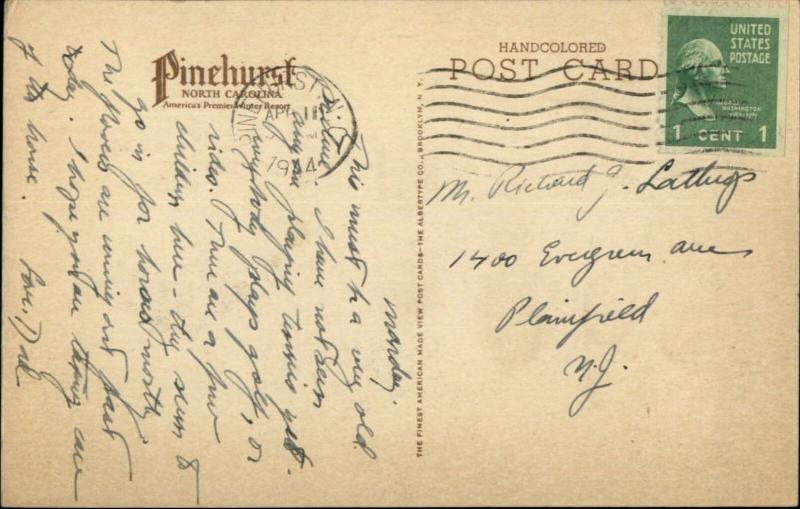 Pinehurst
NORTH CAROLINA
America's Premier Winter Resort
HANDCOLORED
POST CARD
UNITED
STATES
POSTAGE
WASHINGTON
1 CENT 1
N.C.
APR 11
THE FINEST AMERICAN MADE VIEW POST CARDS—THE ALBERTYPE CO., BROOKLYN, N. Y.
Mr. Richard J. Lathrop
1400 Evergreen Ave
Plainfield
N.J.
Monday.
This must be a very old
picture. I have not seen
any one playing tennis yet.
Everybody plays golf, or
rides. There are a few
children here - they seem to
go in for horses mostly
The flowers are coming out fast
today. I hope you are taking care
of the house. Love, Dad